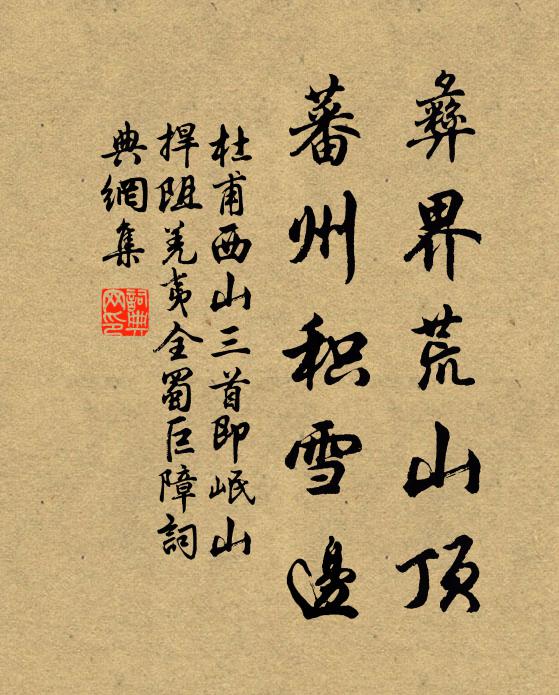 彝界荒山顶
蕃州积雪邊
杜甫西山三首即岷山
捍阻羌夷全蜀巨障詞
典網集
詞典网印